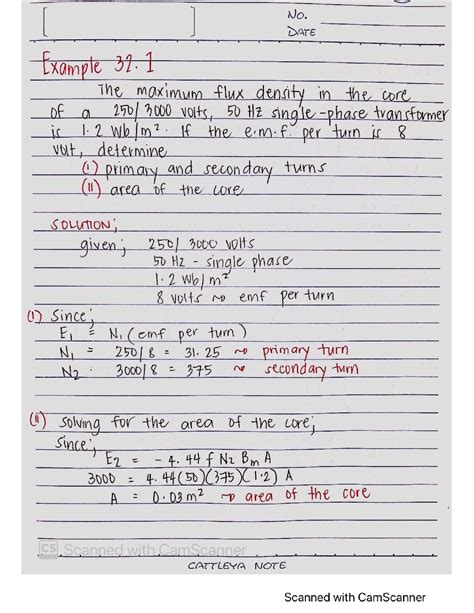 NO.
DATE
Example 32.1
The maximum flux density in the core
of a 250/3000 volts, 50 Hz single-phase transformer
is 1.2 Wb/m². If the e.m.f. per turn is 8
volt, determine
(i) primary and secondary turns
(ii) area of the core
SOLUTION;
given; 250/3000 volts
50 Hz - single phase
1.2 wb/m²
8 volts ~> emf per turn
(i) Since;
E₁ = N₁ (emf per turn)
N₁ = 250/8 = 31.25 ~> primary turn
N₂ = 3000/8 = 375 ~> secondary turn
(ii) solving for the area of the core;
since;
E₂ = - 4.44 f N₂ Bm A
3000 = 4.44(50)(375)(1.2) A
A = 0.03 m² ~> area of the core
CS Scanned with CamScanner
CATTLEYA NOTE
Scanned with CamScanner